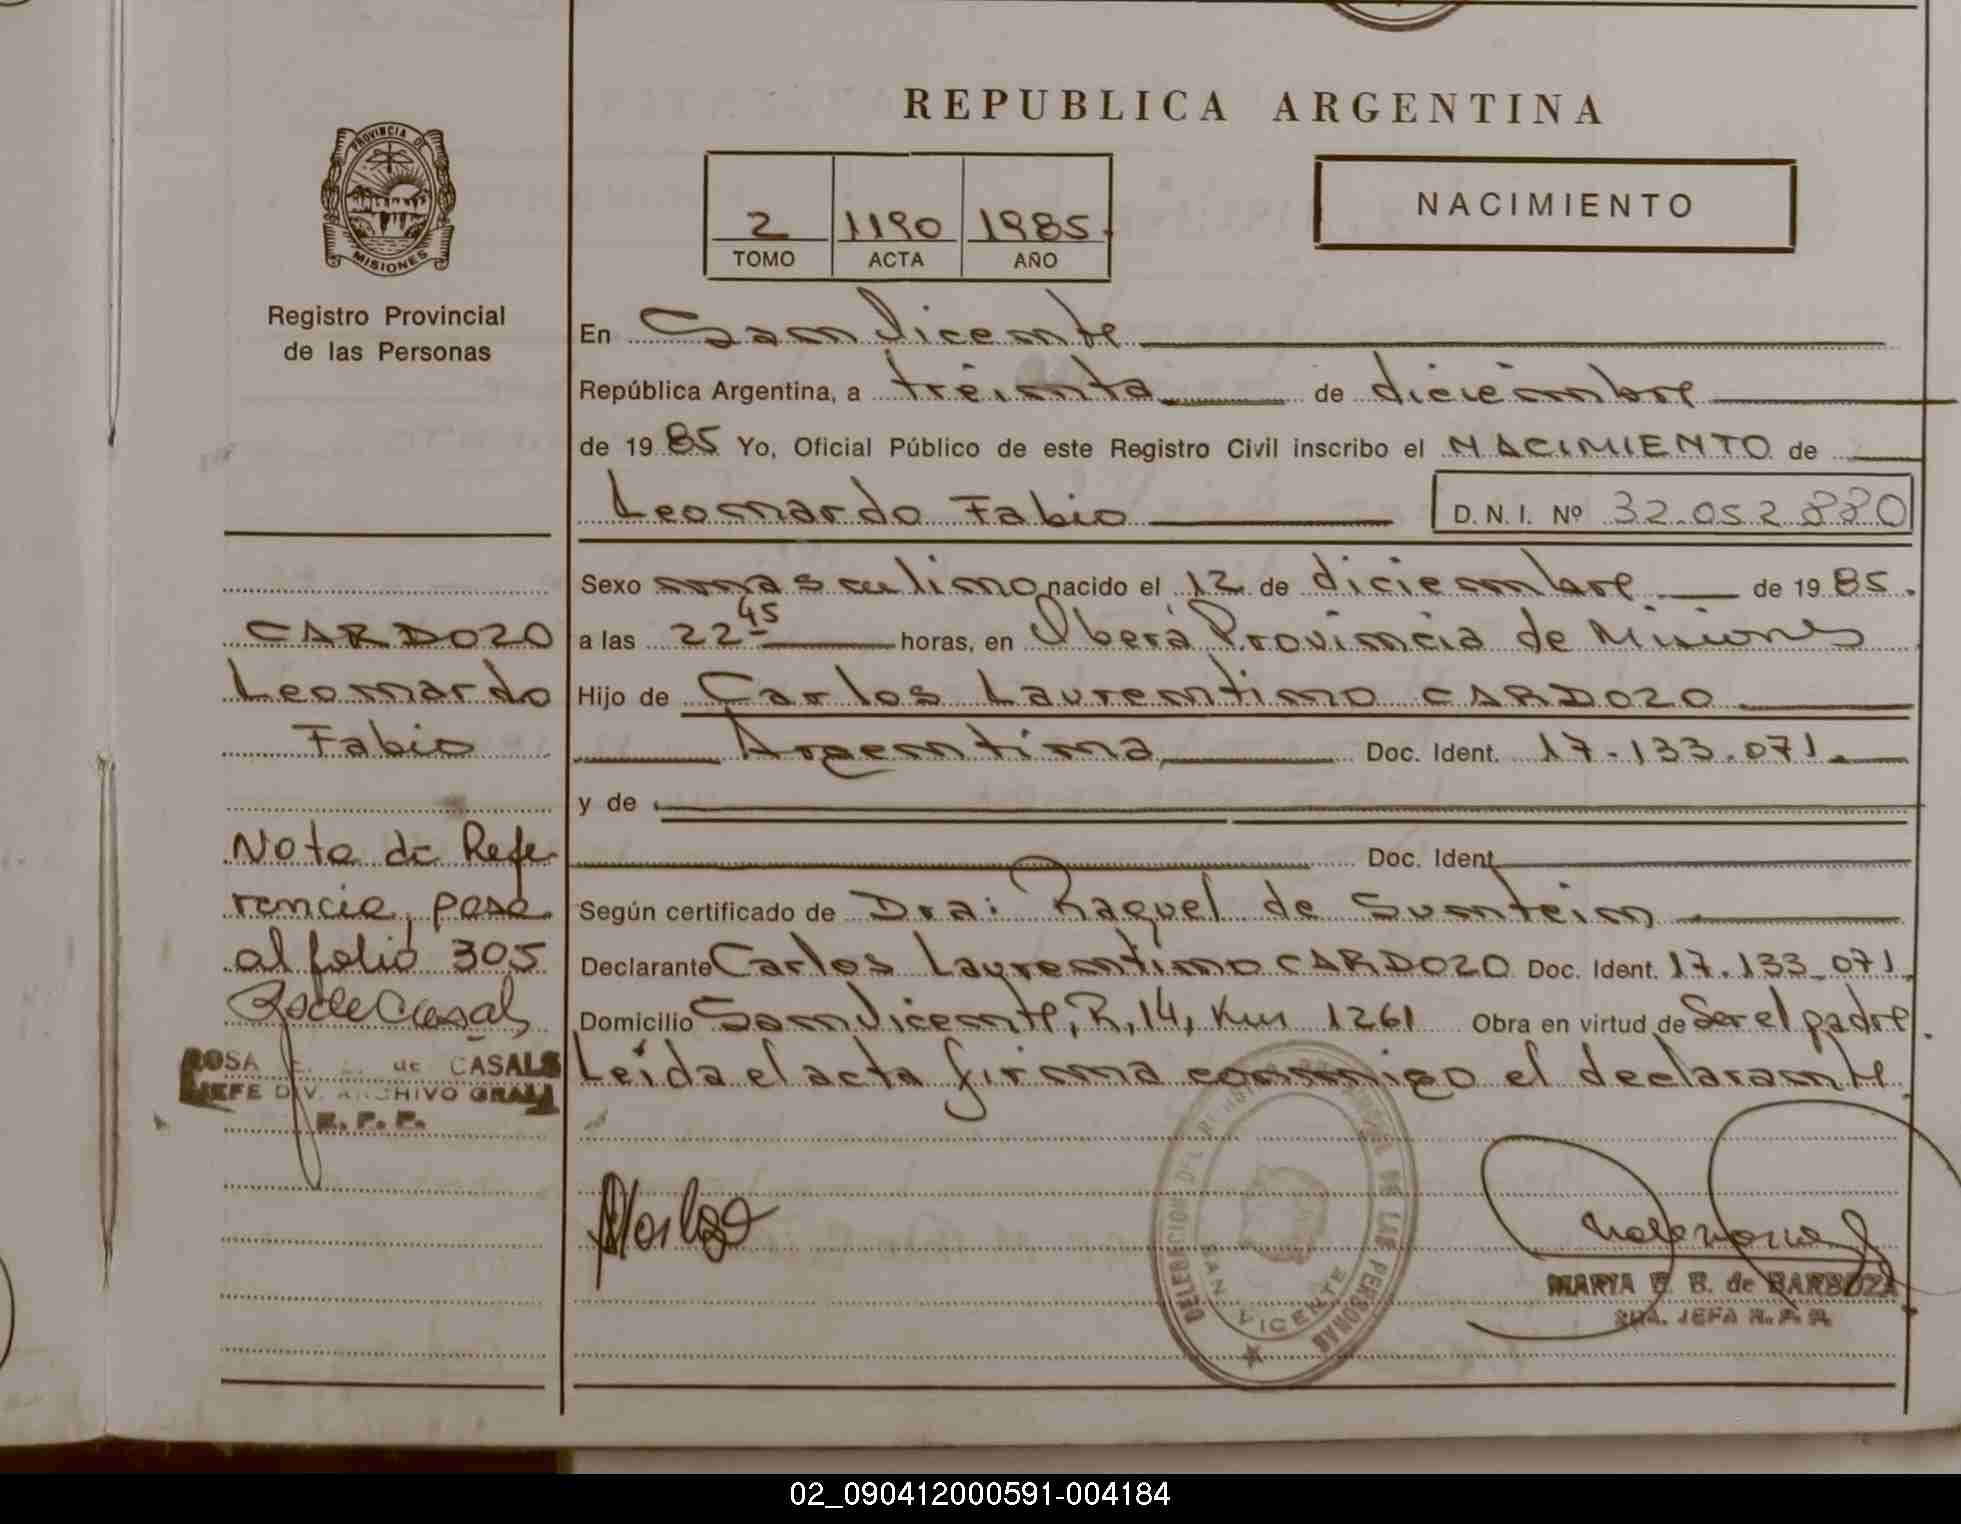 PROVINCIA DE
MISIONES
Registro Provincial
de las Personas
CARDOZO
Leonardo
Fabio
Nota de Refe
rencia, pasa
al folio 305
ROSA de CASALS
JEFE DIV. ARCHIVO GRAL
R. P. P.
REPUBLICA ARGENTINA
2 1190 1985
TOMO ACTA AÑO
NACIMIENTO
En San Vicente
República Argentina, a treinta de diciembre
de 1985 Yo, Oficial Público de este Registro Civil inscribo el NACIMIENTO de
Leonardo Fabio D. N. I. Nº 32.052.880
Sexo masculino nacido el 12 de diciembre de 1985.
a las 22 45 horas, en Oberá Provincia de Misiones
Hijo de Carlos Laurentino CARDOZO
Argentina Doc. Ident. 17.133.071.
y de
Doc. Ident
Según certificado de Dra: Raquel de
Declarante Carlos Laurentino CARDOZO Doc. Ident. 17.133.071.
Domicilio San Vicente, R, 14, Km 1261 Obra en virtud de Ser el padre.
Leída el acta firma conmigo el declarante
SAN VICENTE
MARIA E. B. de BARBOZA
JEFA R. P. P.
02_090412000591-004184